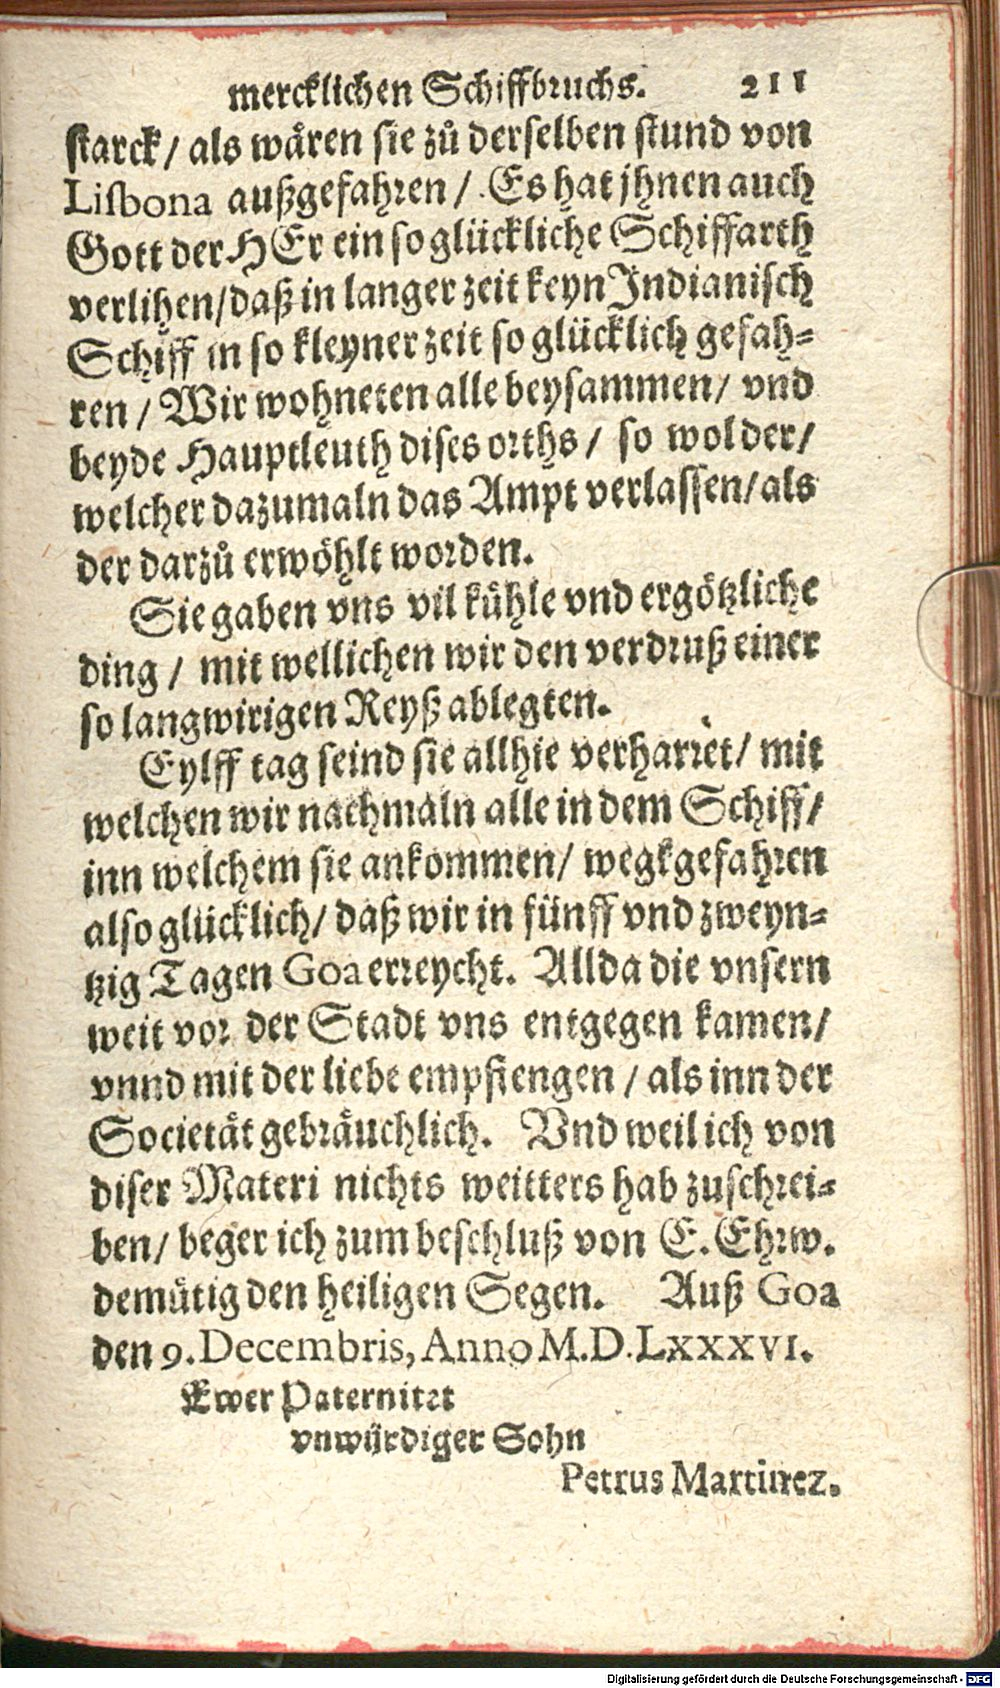 mercklichen Schiffbruchs. 211
starck/ als wären sie zů derselben stund von
Lisbona außgefahren/ Es hat jhnen auch
Gott der HErr ein so glückliche Schiffarth
verlihen/ daß in langer zeit keyn Indianisch
Schiff in so kleyner zeit so glücklich gefah-
ren/ Wir wohneten alle beysammen/ vnd
beyde Hauptleuth dises orths/ so wol der/
welcher dazumaln das Ampt verlassen/ als
der darzů erwöhlt worden.
Sie gaben vns vil kühle vnd ergötzliche
ding/ mit wellichen wir den verdruß einer
so langwirigen Reyß ablegten.
Eylff tag seind sie allhie verharret/ mit
welchen wir nachmaln alle in dem Schiff/
inn welchem sie ankommen/ wegkgefahren
also glücklich/ daß wir in fünff vnd zweyn-
tzig Tagen Goa erreycht. Allda die vnsern
weit vor der Stadt vns entgegen kamen/
vnnd mit der liebe empfiengen/ als inn der
Societät gebräuchlich. Vnd weil ich von
diser Materi nichts weitters hab zuschrei-
ben/ beger ich zum beschluß von E. Ehrw.
demütig den heiligen Segen. Auß Goa
den 9. Decembris, Anno M.D.LXXXVI.
Ewer Paternitet
vnwürdiger Sohn
Petrus Martinez.
Digitalisierung gefördert durch die Deutsche Forschungsgemeinschaft - DFG